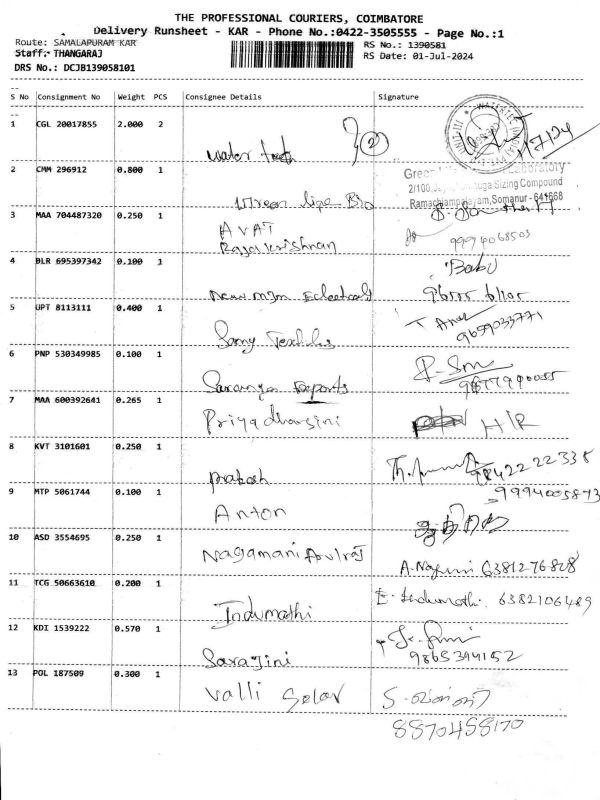 THE PROFESSIONAL COURIERS, COIMBATORE
Delivery Runsheet - KAR - Phone No.:0422-3505555 - Page No.:1
Route: SAMALAPURAM KAR
RS No.: 1390581
Staff: THANGARAJ
RS Date: 01-Jul-2024
DRS No.: DCJB139058101
S No Consignment No Weight PCS Consignee Details Signature
1 CGL 20017855 2.000 2
water (2)
2 CMM 296912 0.800 1
Green
2/100, Sizing Compound
Ramachiampalayam, Somanur - 641668
3 MAA 704487320 0.250 1 AVAT
Rajakrishnan 9994068503
4 BLR 695397342 0.100 1 Babu
New mjm
5 UPT 8113111 0.400 1
Samy Textiles 9659033771
6 PNP 530349985 0.100 1
Saranya Exports
7 MAA 600392641 0.265 1 Priyadharsini H/R
8 KVT 3101601 0.250 1
prakash 9842222338
9 MTP 5061744 0.100 1 Anton 9994005873
10 ASD 3554695 0.250 1
Nagamani Arulraj A. 6381276828
11 TCG 50663610 0.200 1
Indumathi E. Indumathi. 6382106489
12 KDI 1539222 0.570 1
Sarojini 9865394152
13 POL 187509 0.300 1 Valli Selav S. வள்ளி
8870458170